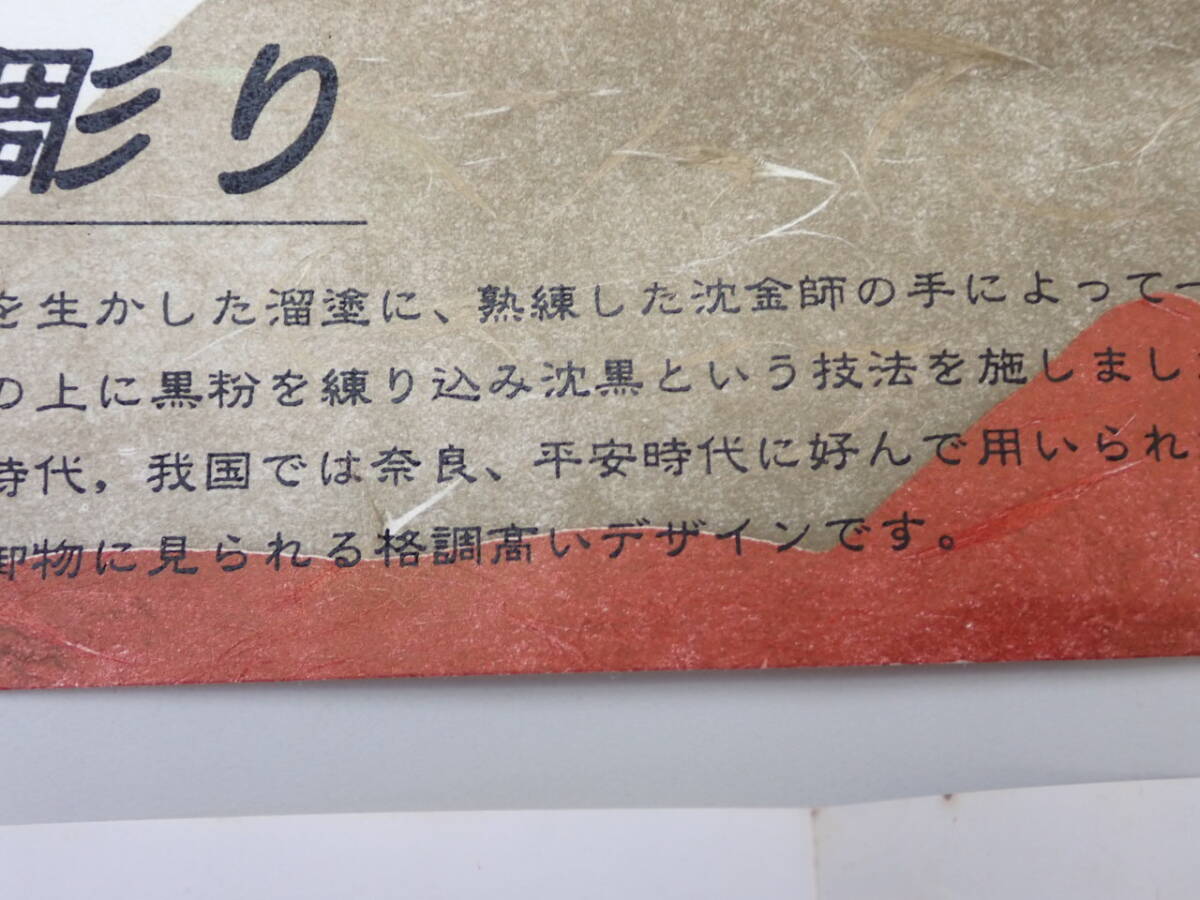 彫り
を生かした溜塗に、熟練した沈金師の手によって一
の上に黒粉を練り込み沈黒という技法を施しまし
時代，我国では奈良、平安時代に好んで用いられ
御物に見られる格調高いデザインです。